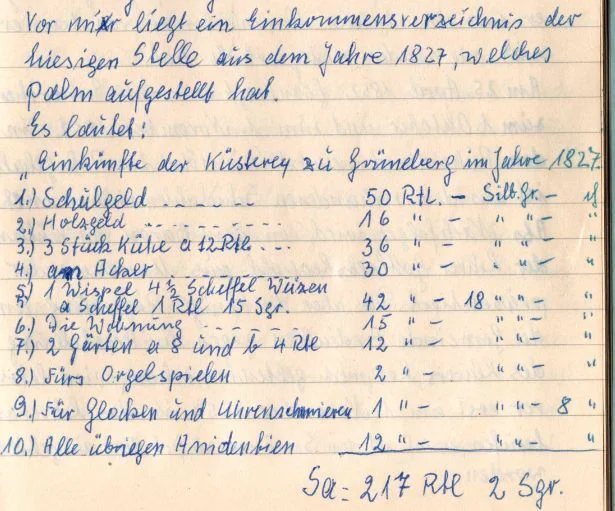 Vor mir liegt ein Einkommensverzeichnis der
hiesigen Stelle aus dem Jahre 1827, welches
Palm aufgestellt hat.
Es lautet:
„Einkünfte der Küsterey zu Grüneberg im Jahre 1827.
1.) Schulgeld . . . . . . 50 Rtl. – Silb.Gr. – ₰
2.) Holzgeld . . . . . . . . . . 16 " – " " – "
3.) 3 Stück Kühe a 12 Rtl . . . 36 " – " " – "
4.) an Acker . . . . . . . . . . 30 " – " " – "
5.) 1 Wispel 4 ½ Scheffel Weizen
a Scheffel 1 Rtl 15 Sgr. 42 " – 18 " " – "
6.) Die Wohnung . . . . . . . 15 " – " " – "
7.) 2 Gärten a 8 und b 4 Rtl 12 " – " " – "
8.) Fürs Orgelspielen 2 " – " " – "
9.) Für Glocken und Uhrenschmieren 1 " – " " – 8 "
10.) Alle übriegen Anidentien 12 " – " " – "
Sa = 217 Rtl 2 Sgr.